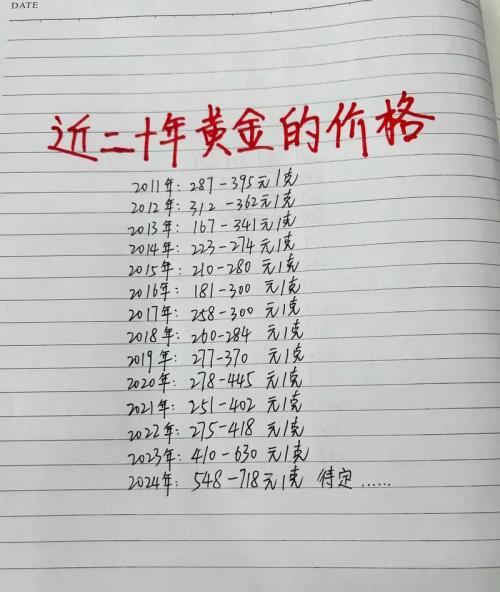 DATE
近二十年黄金的价格
2011年: 287-395元/克
2012年: 312-362元/克
2013年: 167-341元/克
2014年: 223-274元/克
2015年: 210-280 元/克
2016年: 181-300 元/克
2017年: 258-300 元/克
2018年: 260-284 元/克
2019年: 277-370 元/克
2020年: 278-445 元/克
2021年: 251-402 元/克
2022年: 275-418 元/克
2023年: 410-630 元/克
2024年: 548-718元/克 待定......